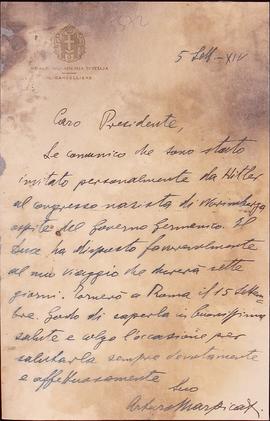 REALE ACCADEMIA D'ITALIA
IL CANCELLIERE
5 Sett - XIV
Caro Presidente,
Le comunico che sono stato
invitato personalmente da Hitler
al congresso nazista di Norimberga
ospite del Governo Germanico. Il
Duce ha disposto favorevolmente
al mio viaggio che durerà sette
giorni. Tornerò a Roma il 15 Settem-
bre. Godo di saperla in buonissima
salute e colgo l'occasione per
salutarla sempre devotamente
e affettuosamente
Suo
Arturo Marpicati